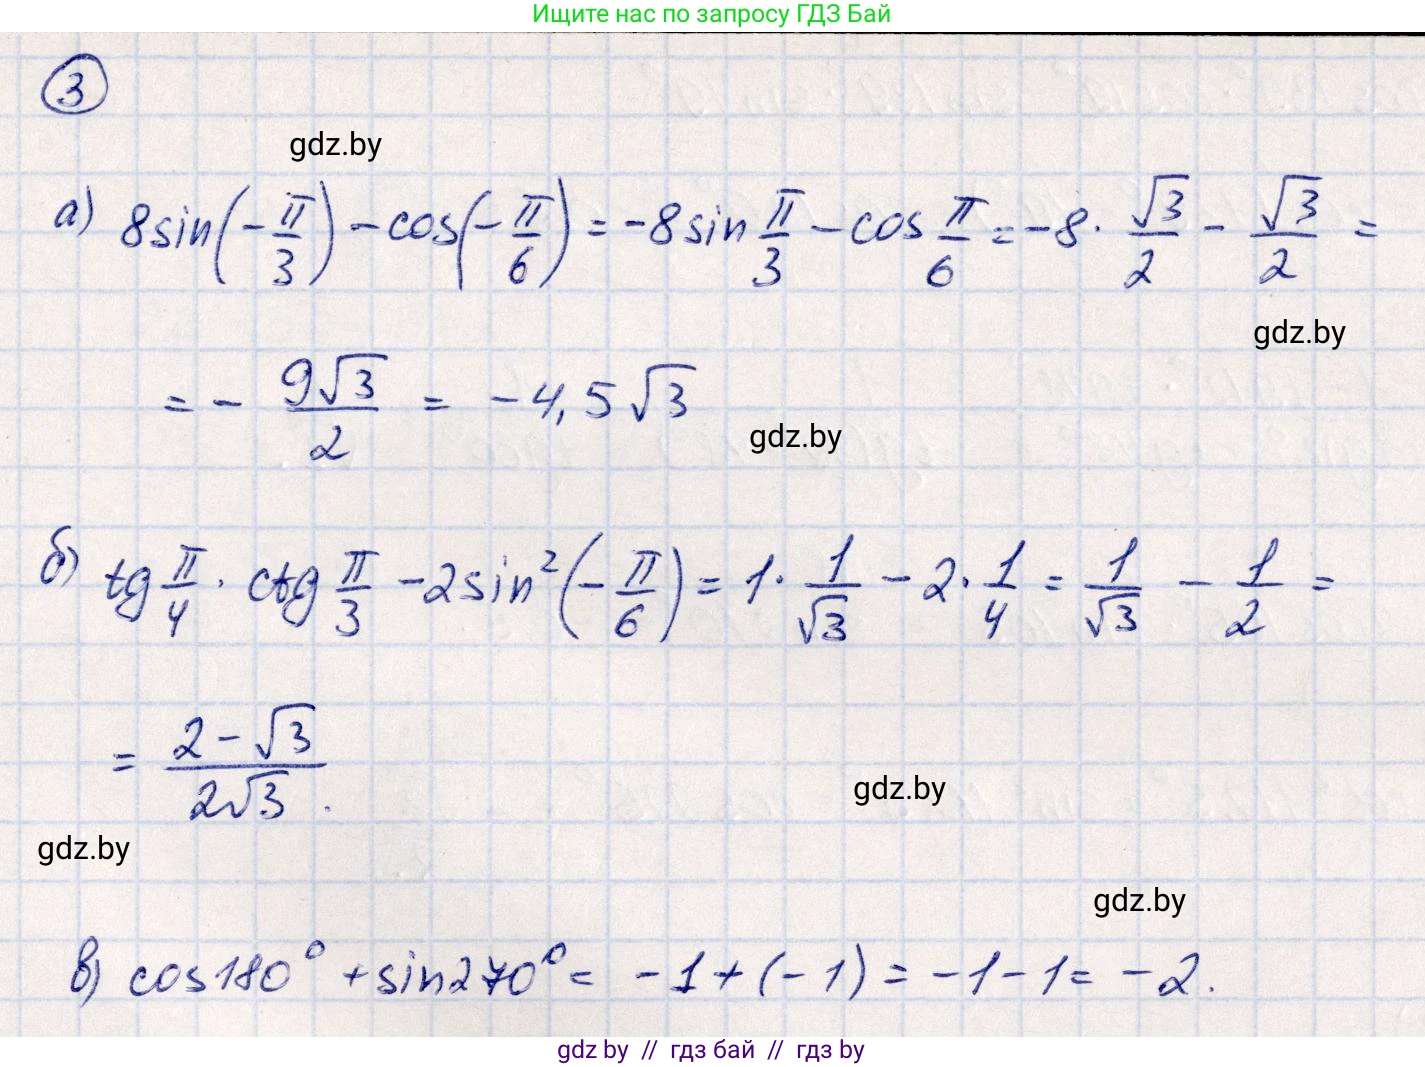 Ищите нас по запросу ГДЗ Бай
3
gdz.by
а) 8sin(-π/3) - cos(-π/6) = -8sin π/3 - cos π/6 = -8 · √3/2 - √3/2 =
gdz.by
= - 9√3/2 = -4,5√3
gdz.by
б) tg π/4 · ctg π/3 - 2sin²(-π/6) = 1 · 1/√3 - 2 · 1/4 = 1/√3 - 1/2 =
= (2-√3)/(2√3).
gdz.by
gdz.by
gdz.by
в) cos180° + sin270° = -1 + (-1) = -1 - 1 = -2.
gdz by // гдз бай // гдз by